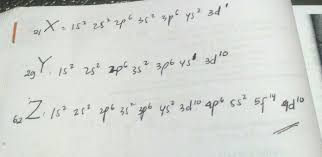 21X = 1s² 2s² 2p⁶ 3s² 3p⁶ 4s² 3d¹
29Y. 1s² 2s² 2p⁶ 3s² 3p⁶ 4s¹ 3d¹⁰
62Z. 1s² 2s² 2p⁶ 3s² 3p⁶ 4s² 3d¹⁰ 4p⁶ 5s² 5f¹⁴ 4d¹⁰